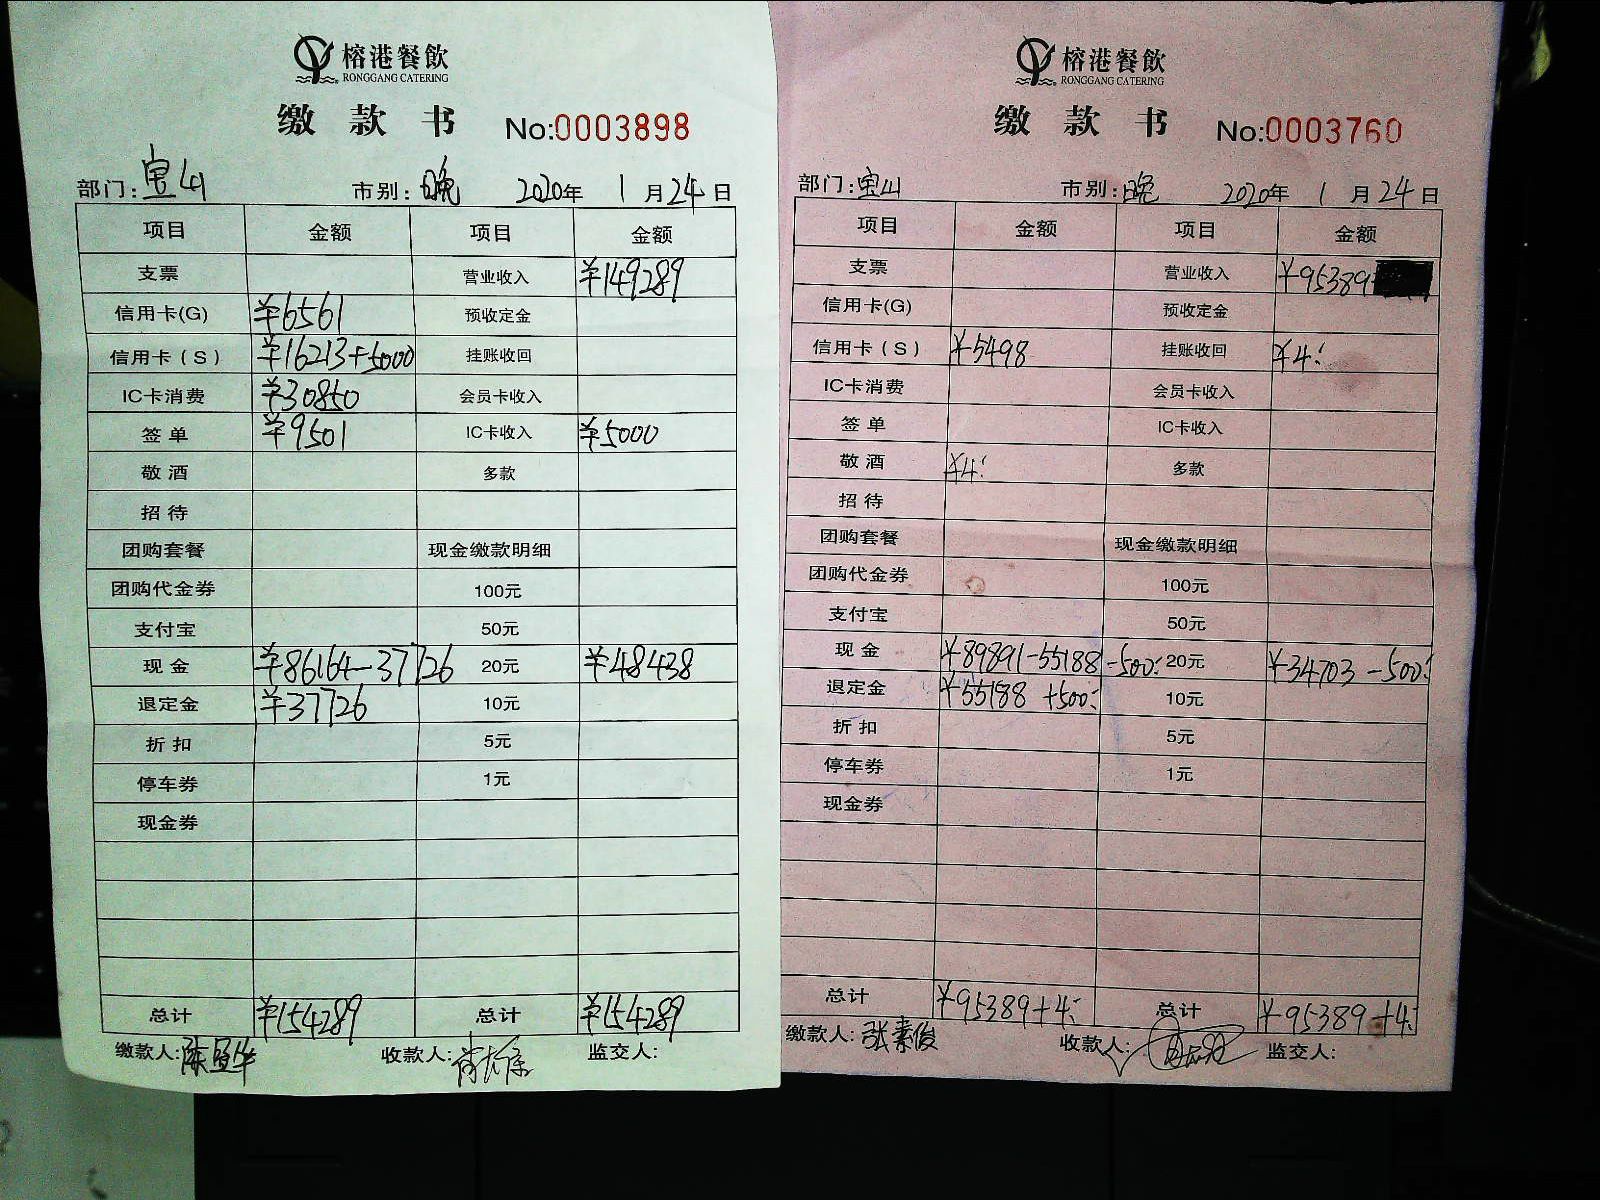 榕港餐飲
RONGGANG CATERING
缴款书 No:0003898
部门:宝山 市别:晚 2020年1月24日
项目 金额 项目 金额
支票 营业收入 ¥149289
信用卡(G) ¥6561 预收定金
信用卡(S) ¥16213+5000 挂账收回
IC卡消费 ¥30850 会员卡收入
签单 ¥9501 IC卡收入 ¥5000
敬酒 多款
招待
团购套餐 现金缴款明细
团购代金券 100元
支付宝 50元
现金 ¥86164-37726 20元 ¥48438
退定金 ¥37726 10元
折扣 5元
停车券 1元
现金券
总计 ¥154289 总计 ¥154289
缴款人: 收款人: 监交人:
榕港餐飲
RONGGANG CATERING
缴款书 No:0003760
部门:宝山 市别:晚 2020年1月24日
项目 金额 项目 金额
支票 营业收入 ¥95389
信用卡(G) 预收定金
信用卡(S) ¥5498 挂账收回 ¥4:
IC卡消费 会员卡收入
签单 IC卡收入
敬酒 ¥4: 多款
招待
团购套餐 现金缴款明细
团购代金券 100元
支付宝 50元
现金 ¥89891-55188-500: 20元 ¥34703-500:
退定金 ¥55188+500: 10元
折扣 5元
停车券 1元
现金券
总计 ¥95389+4: 总计 ¥95389+4:
缴款人:张素俊 收款人: 监交人: